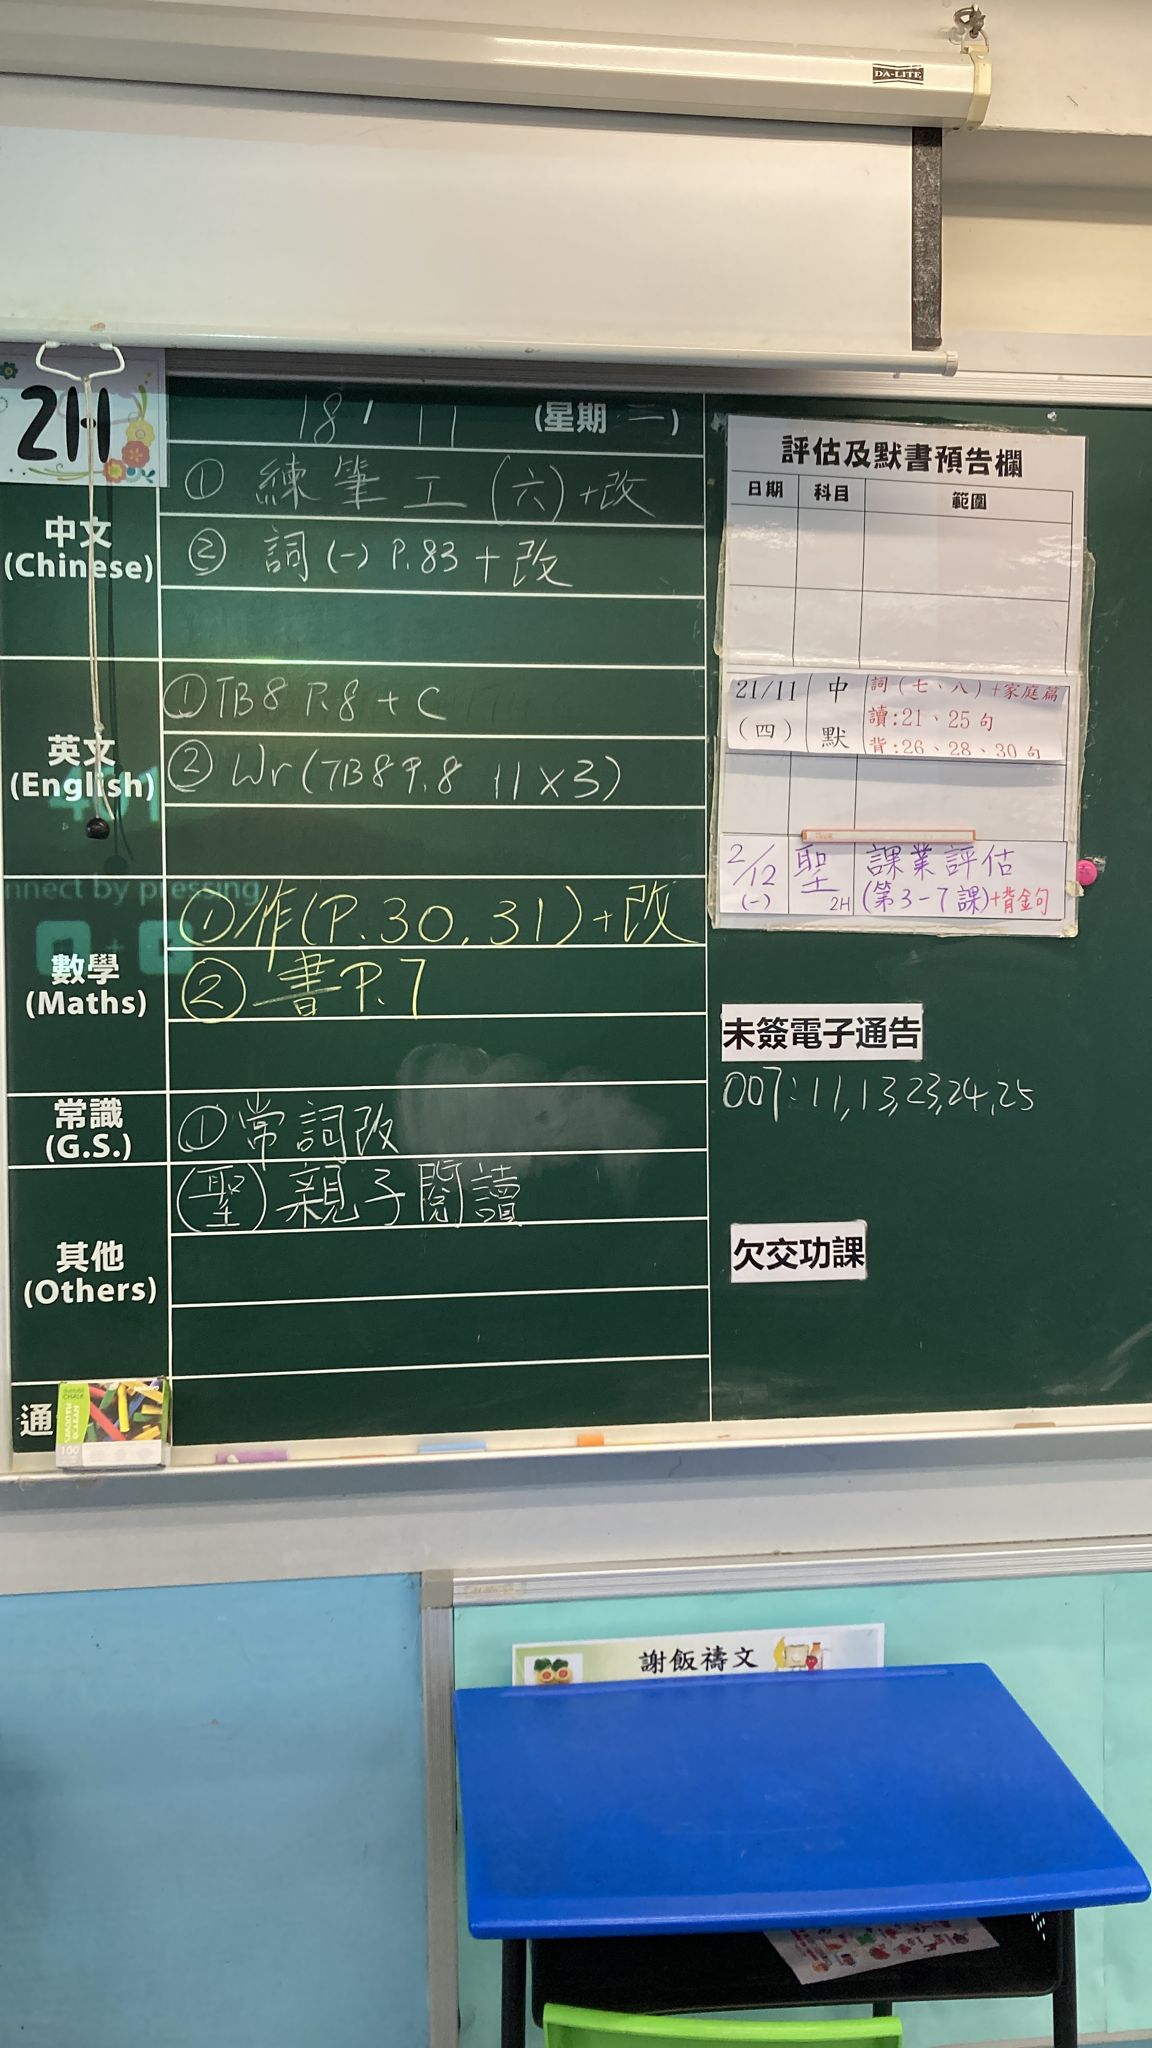 DA-LITE
2H
18/11 (星期一)
中文
(Chinese)
① 練筆工(六)+改
② 詞(一) P.83+改
英文
(English)
① TB8 P.8 + C
② Wr(TB8 P.8 11×3)
nnect by pressing
數學
(Maths)
① 作(P.30,31)+改
② 書P.7
常識
(G.S.)
① 常詞改
其他
(Others)
(聖)親子閱讀
通
CHALK
100
評估及默書預告欄
日期 科目 範圍
21/11 (四) 中默 詞(七、八)+家庭篇
讀:21、25句
背:26、28、30句
2/12 (一) 聖 2H 課業評估
(第3-7課)+背金句
未簽電子通告
007:11,13,23,24,25
欠交功課
謝飯禱文